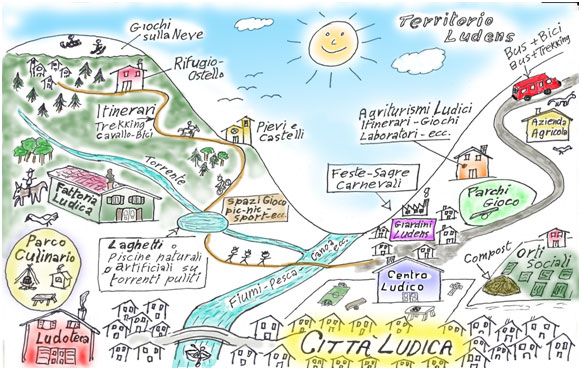 Giochi
sulla Neve
Territorio
Ludens
Bus+Bici
Bus+Trekking
Rifugio-
Ostello
Itinerari
Trekking
Cavallo-Bici
Pievi e
Castelli
Agriturismi Ludici
Itinerari-Giochi
Laboratori-ecc.
Azienda
Agricola
Torrente
Feste-Sagre
Carnevali
Fattoria
Ludica
Spazi Gioco
pic-nic-
sport-ecc.
Parchi
Gioco
Giardini
Ludens
Parco
Culinario
Laghetti o
Piscine naturali
o artificiali su
torrenti puliti
Canoa
ecc.
Fiumi-Pesca
Centro
Ludico
Compost
Orti
Sociali
Ludoteca
CITTA LUDICA